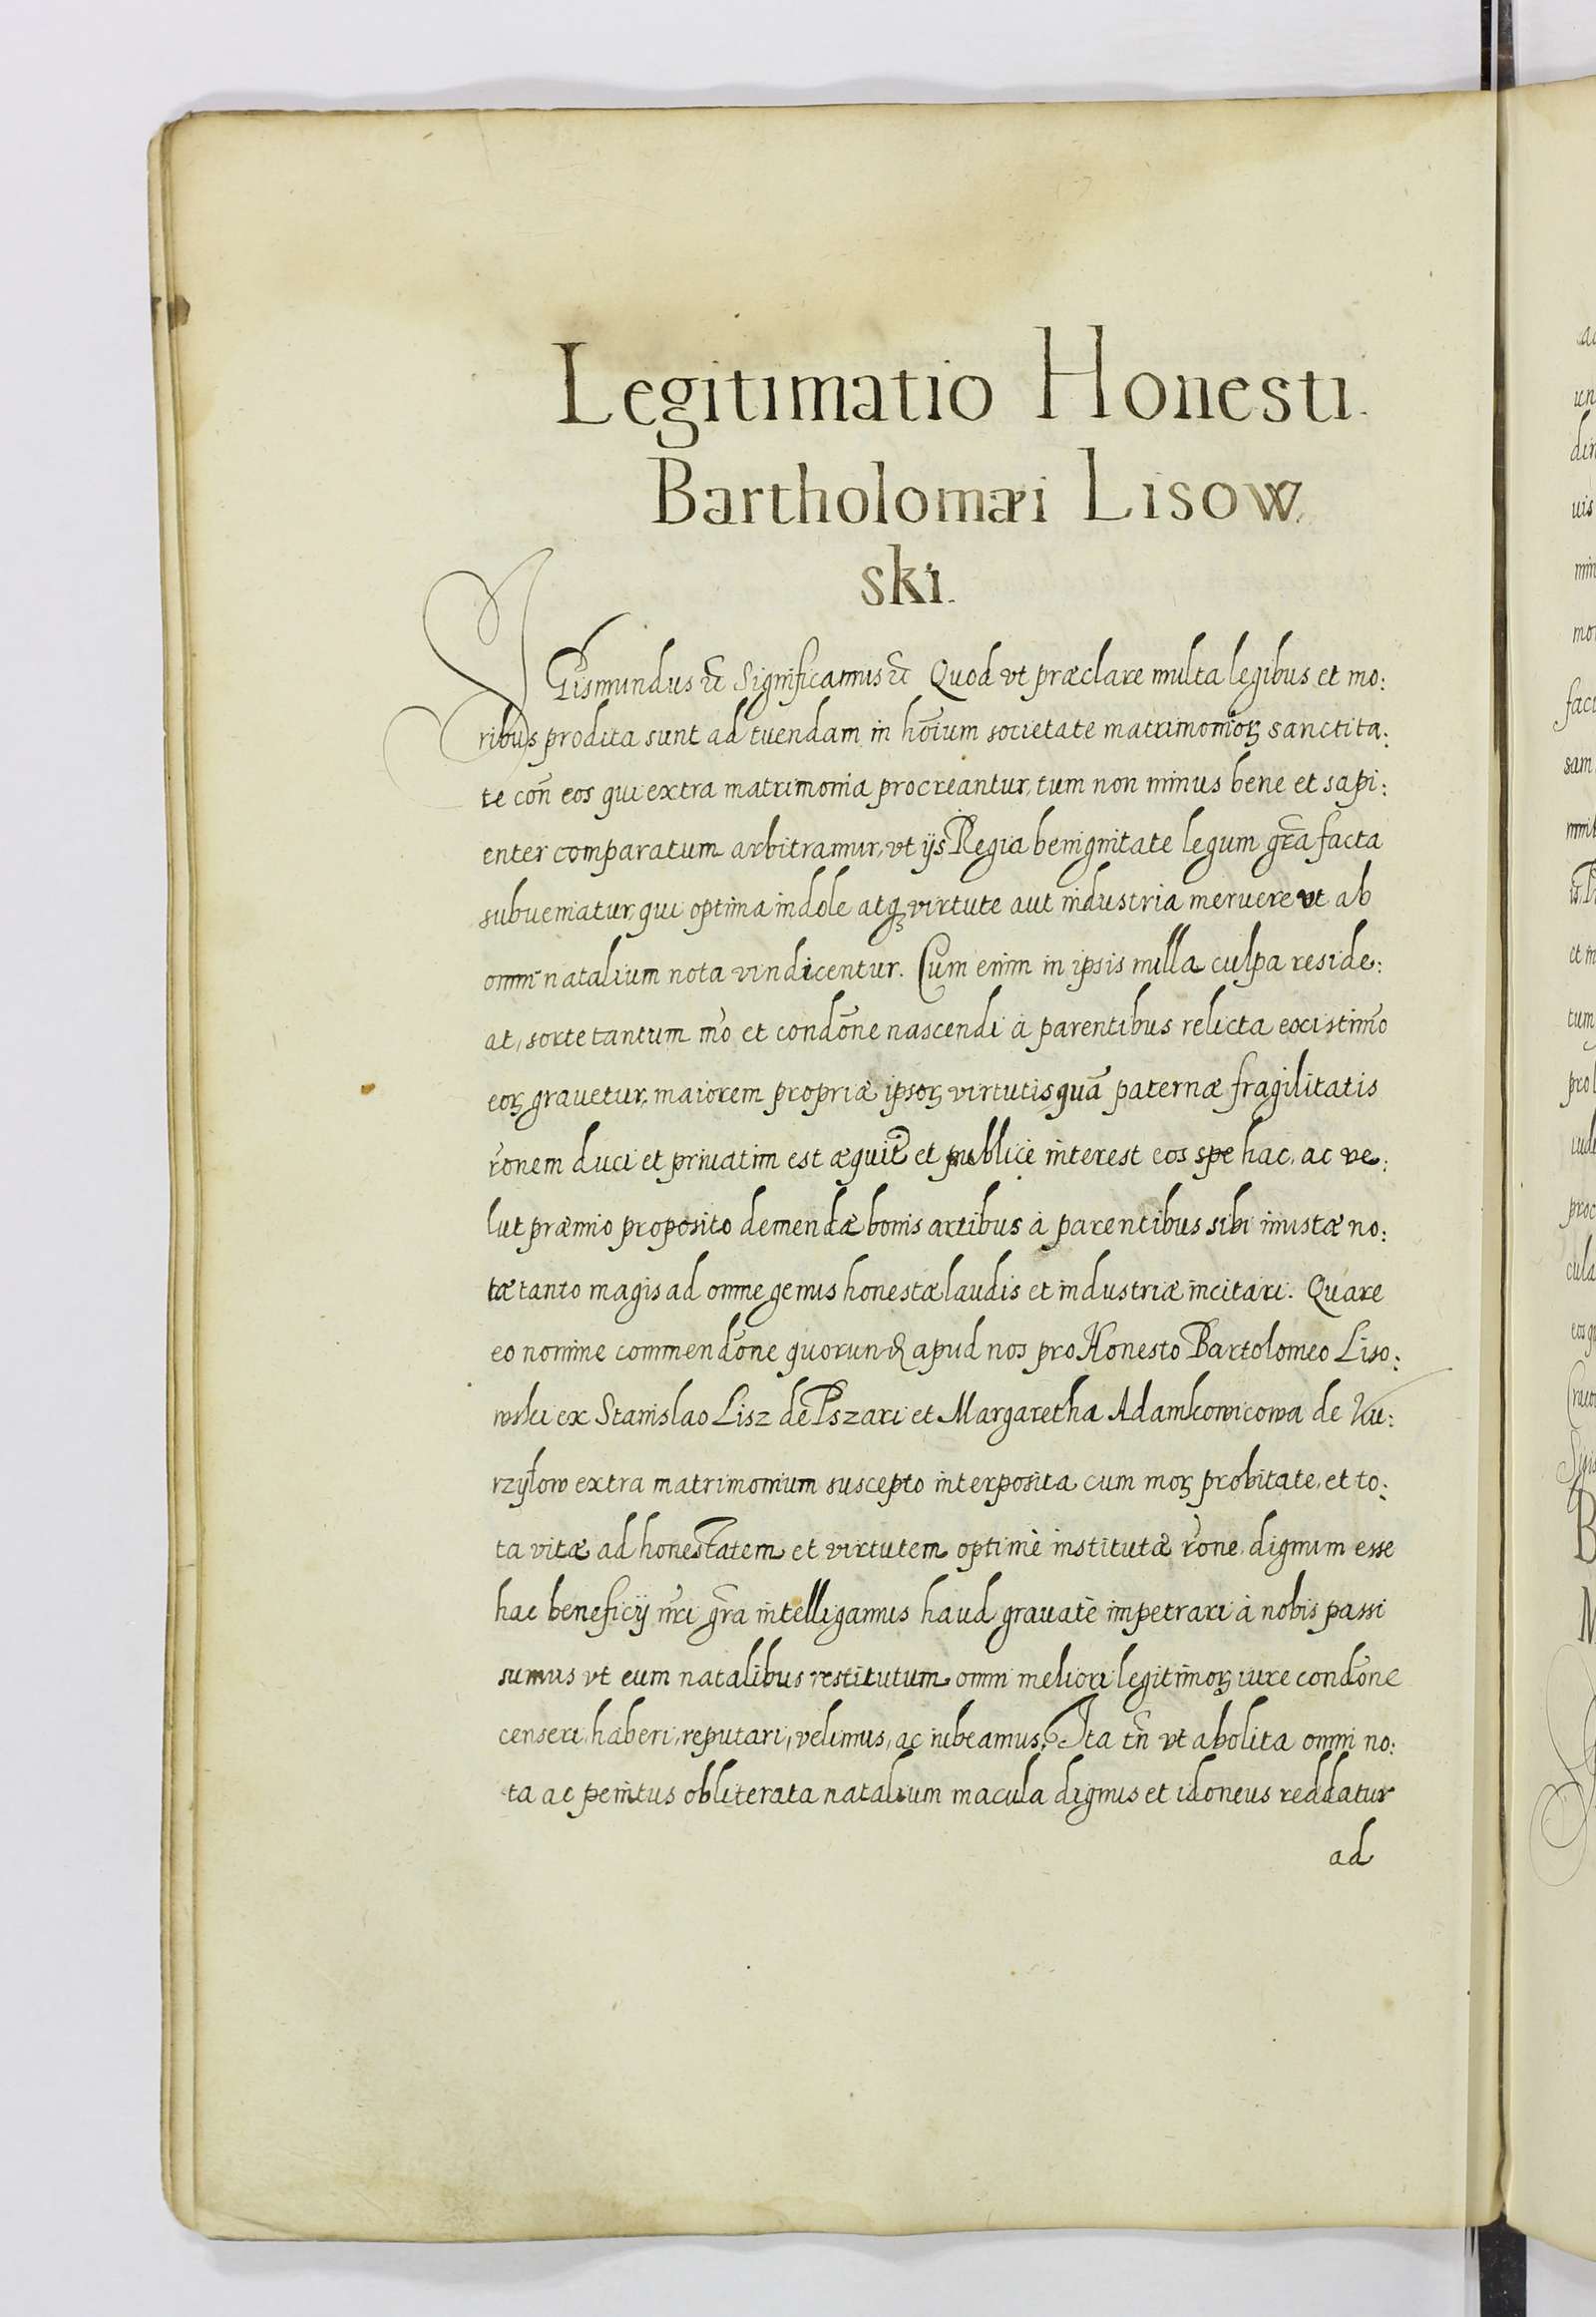 Legitimatio Honesti.
Bartholomæi Lisow.
ski.
SGismundus &c̃ Significamus &c̃ Quod vt præclare multa legibus et mo:
ribus prodita sunt ad tuendam in hõium societate matrimonioꝝ sanctita:
te coñ eos qui extra matrimonia procreantur, tum non minus bene et sapi:
enter comparatum arbitramur, vt ijs Regia benignitate legum gr̃a facta
subueniatur, qui optima indole atqꝫ virtute aut industria meruere vt ab
omni natalium nota vindicentur. Cum enim in ipsis nulla culpa reside:
at, sorte tantum m̃o et condõne nascendi à parentibus relicta existim̃o
eoꝝ grauetur, maiorem propriæ ipsoꝝ virtutis quã paternæ fragilitatis
r̃onem duci et priuatim est æquũ et publicè interest eos spe hac, ac ve:
lut præmio proposito demendæ bonis artibus à parentibus sibi inustæ no:
tæ tanto magis ad omne genus honestæ laudis et industriæ incitari. Quare
eo nomine commendõne quorund̃ apud nos pro Honesto Bartolomeo Liso:
wski ex Stanislao Lisz de Pszari et Margaretha Adamkowicowa de Ku:
rzyłow extra matrimonium suscepto interposita cum moꝝ probitate, et to:
ta vitæ ad honestatem et virtutem optimè institutæ r̃one, dignum esse
hac beneficij nr̃i gr̃a intelligamus haud grauatè impetrari à nobis passi
sumus vt eum natalibus restitutum omni meliori legitimoꝝ iure condõne
censeri, haberi, reputari, velimus, ac iubeamus. Ita tñ vt abolita omni no:
ta ac penitus obliterata natalium macula dignus et idoneus reddatur
ad